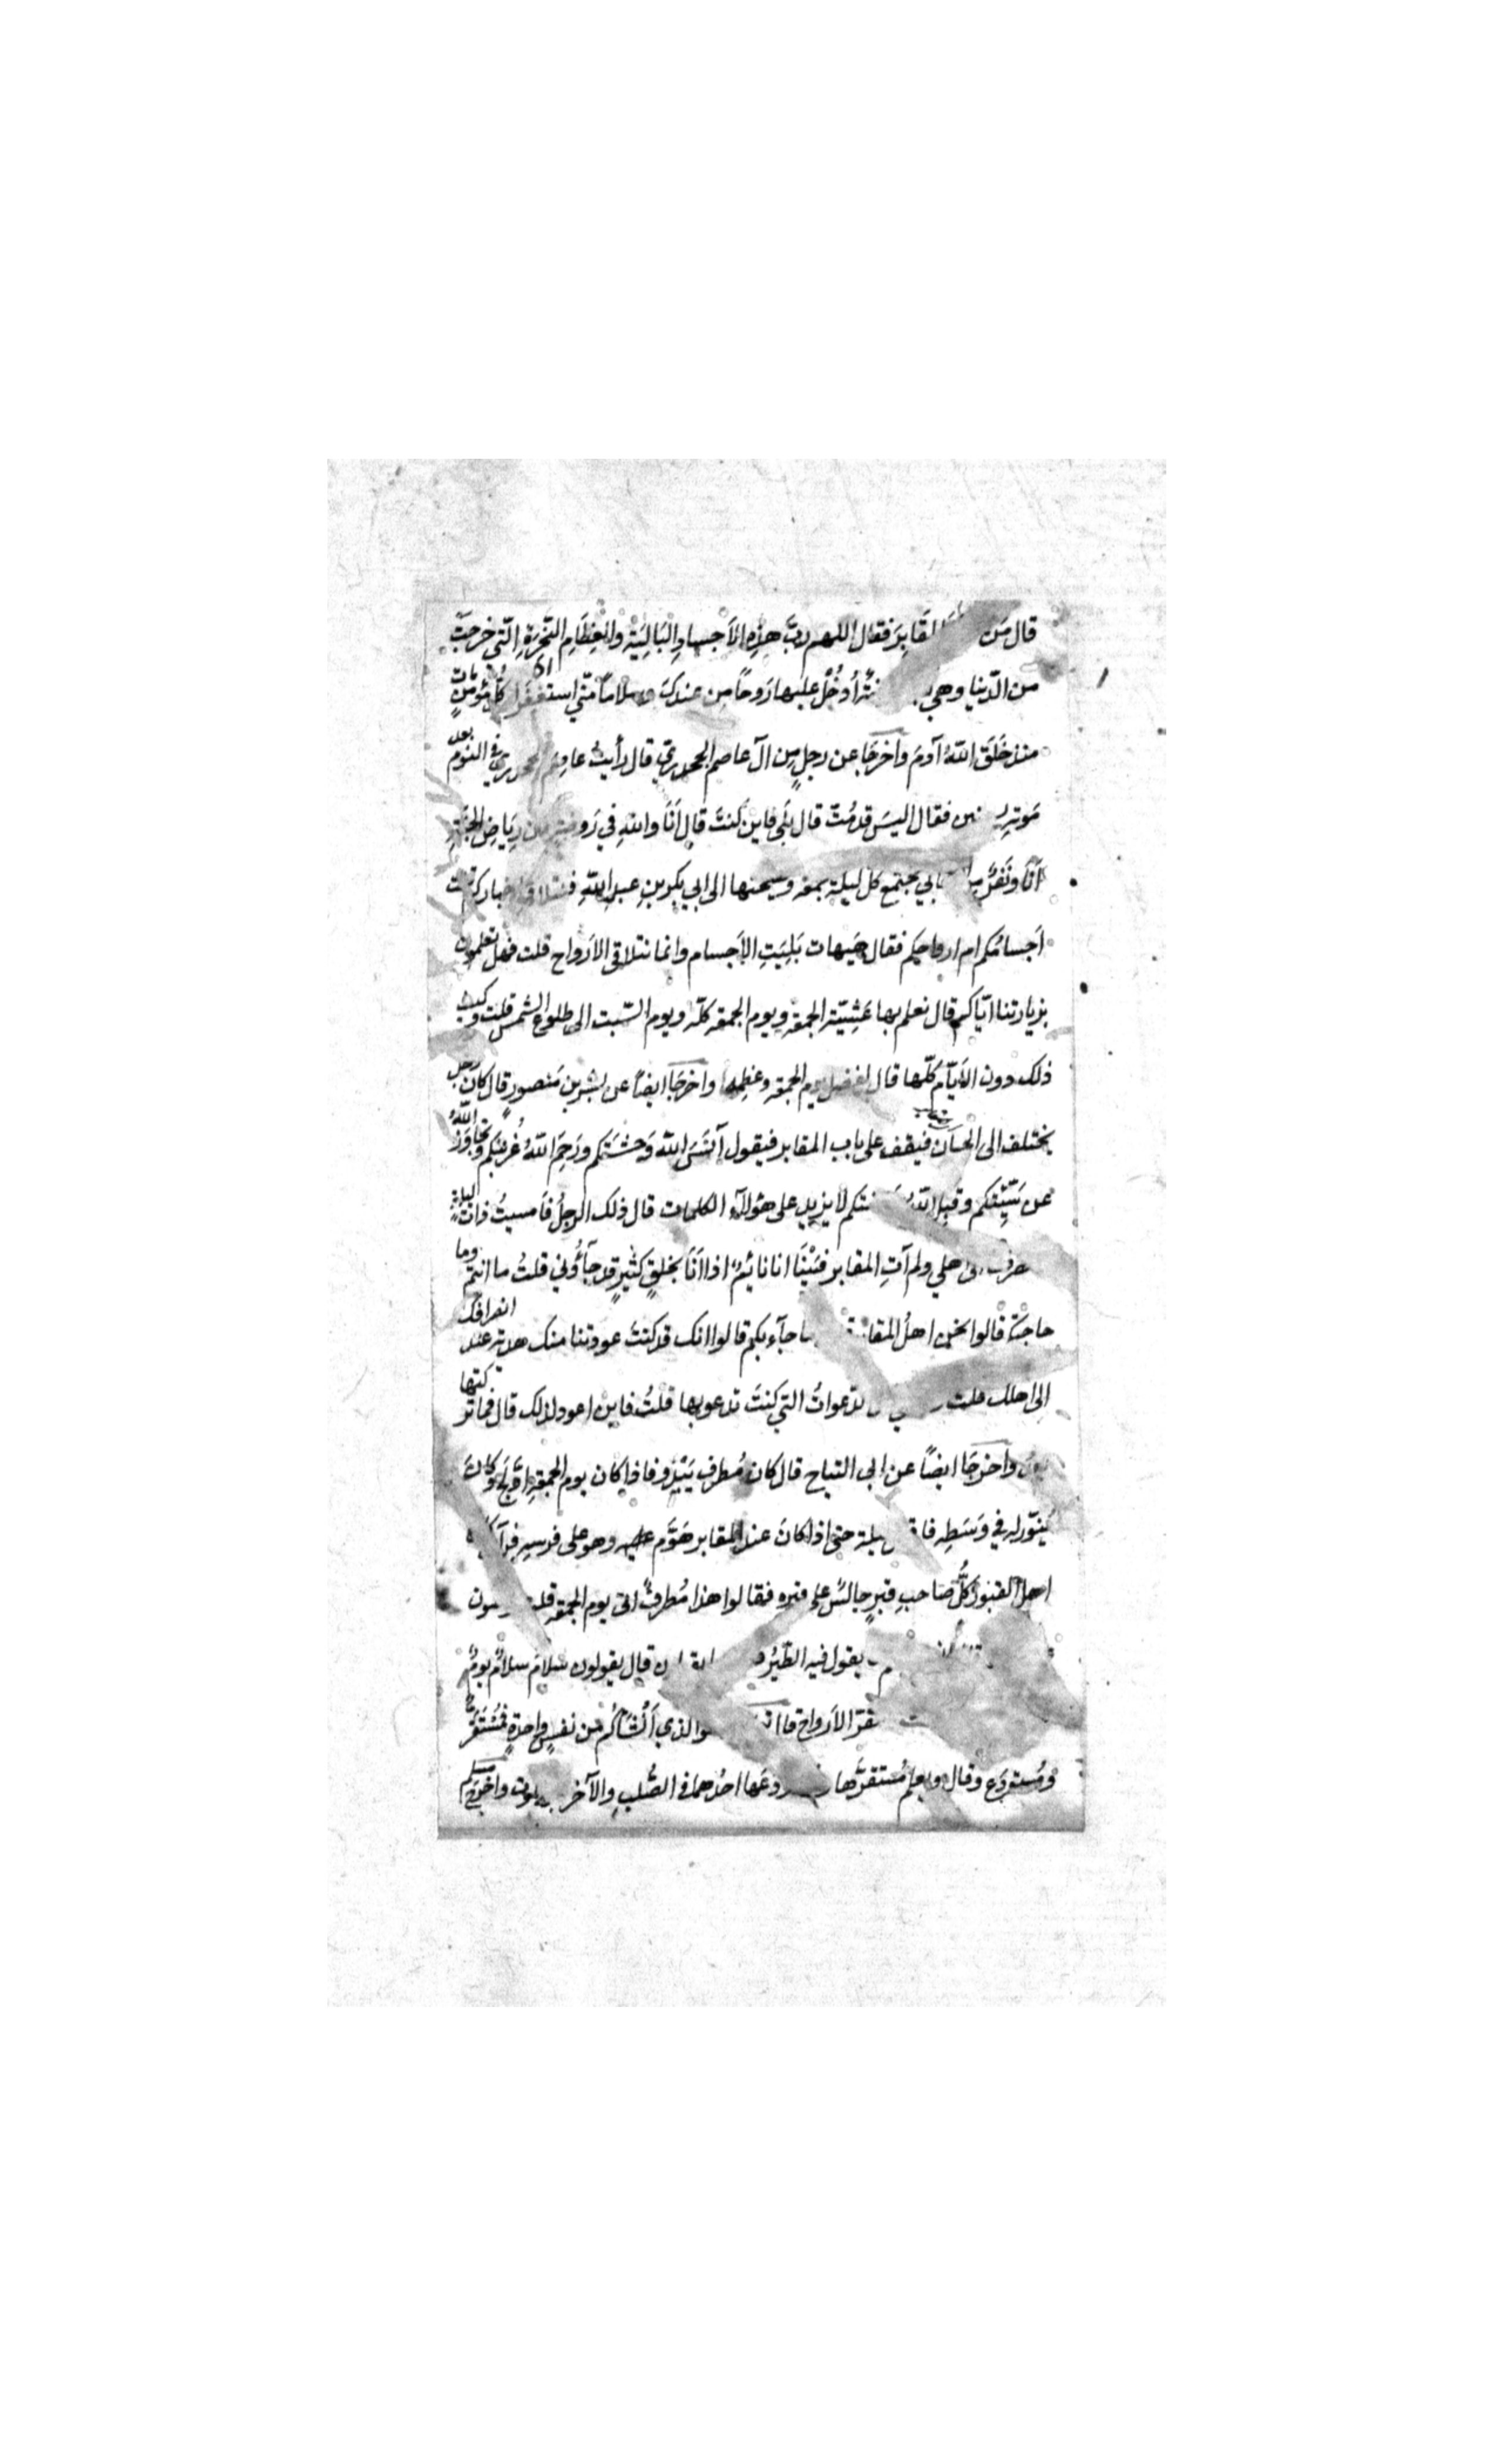 قال مَن المقَابِرَ فقال اللهم ربَّ هذِهِ الاَجسادِ البَالِيَةِ والعِظَامِ النَّخِرَةِ الّتي خرجتْ
من الدّنيا وهي أدخُلْ عليها رَوحًا مِن عندكَ وسلامًا منّي استغفَرَ كلُّ مُؤمنٍ مات
منذ خَلَقَ اللهُ آدمَ واخرجَا عن رجلٍ مِن آل عاصم الجحدريّ قال رأيتُ عاصِمَ الجحدريَّ في النوم بعد
مَوتِهِ فقال اليسَ قد مُتَّ قال بَلَى فاين كنتَ قال اَنَا واللهِ في رَوضةٍ مِن رِيَاضِ الجنّةِ
اَنَا ونَفَرٌ يجتمع كل ليلة جمعة وصبحتها الى ابي بكر بنِ عبدِ اللهِ فنتلاقى اخباركم قلت
اَجسامُكم ام ارواحكم فقال هَيهات بَلِيَتِ الاَجسام وانما نتلاقى الارواح قلت فهل تعلمون
بزيارتنا ايّاكم قال نعلم بها عَشِيّة الجمعة ويوم الجمعة كلّه ويوم السّبت الى طلوع الشمس قلت وكيف
ذلك دون الاَيّام كلّها قال لفضل يوم الجمعة وعِظمِها واخرجَا ايضًا عن بشر بن مَنصورٍ قال كان رجل
يختلف الى الجبّان فيقف على باب المقابر فيقول آنَسَ اللهُ وَحْشَتَكم ورَحِمَ اللهُ غُربَتَكم وتجاوَزَ اللهُ
عن سَيّئِكم وقَبِلَ اللهُ لا يزيد على هؤلآءِ الكلمات قال ذلك الرجلُ فاَمسيتُ ذات ليلةٍ
الى اهلي ولم آتِ المقابر فبَيْنَا انا نائِمٌ اذا اَنَا بخلقٍ كثيرٍ قد جآؤُني قلتُ ما انتم وما
حاجتُكم قالوا نحن اهلُ المقابر جآء بكم قالوا انك قد كنتَ عودتنا منك هدية عند انصرافك
الى اهلك قلت الدعواتُ التي كنتَ تدعو بها قلتُ فاني اعود لذلك قال فما تركتها
بعدُ واخرجَا ايضًا عن ابي التياح قال كان مُطرف يَبْدُو فاذا كان يوم الجمعةِ ادَّلَجَ وكانَ
يُنوّر له في وَسَطِه ليلة حتى اذا كانَ عند المقابر هَوَّم عليه وهو على فرسِهِ فرآى
اهلَ القبورِ كلُّ صَاحبِ قبرٍ جالسٌ على قبره فقالوا هذا مُطرفٌ اتى يوم الجمعةِ
يقول فيه الطّيرُ قال يقولون سَلامٌ سلامٌ يومٌ
الاَرواح والذي اَنْشَاَكُم مِن نفسٍ واحدةٍ فمُستَقَرٌّ
ومُستودَع وقال ويعلم مُستقرَّها احدهما في الصُّلبِ والآخر واخرج مسلم